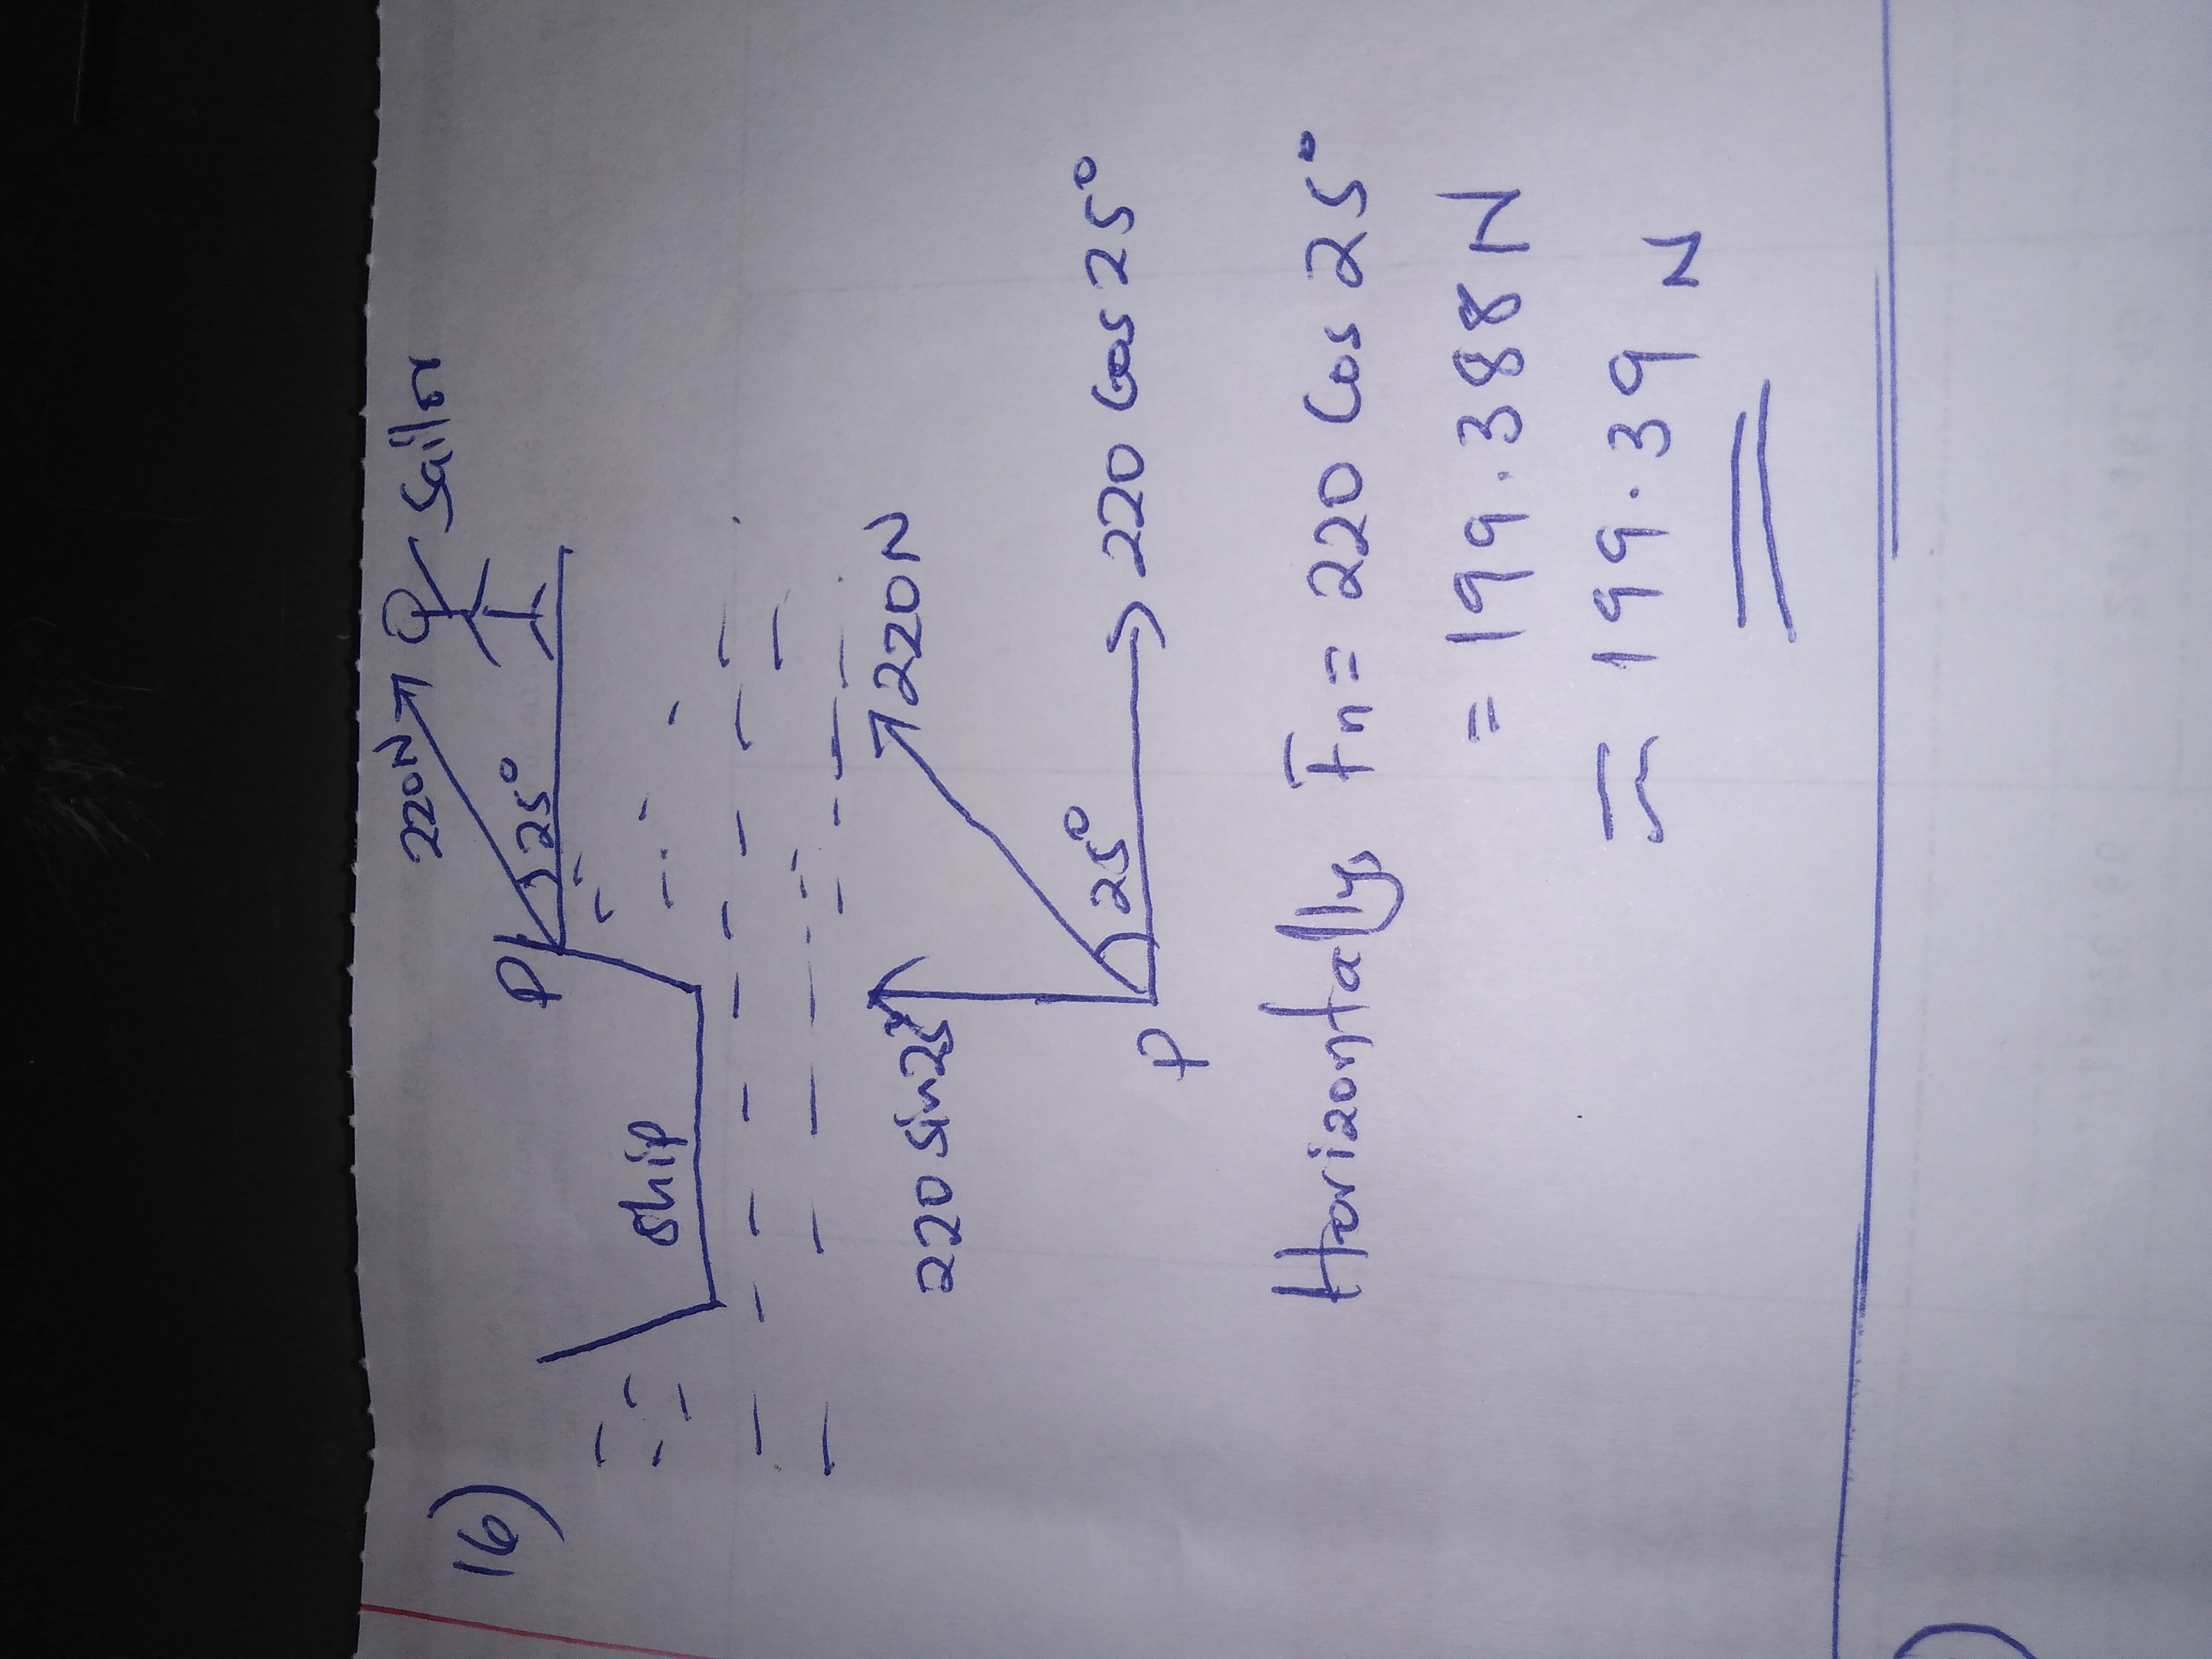 16)
220N
Sailor
P
25°
Ship
220 Sin25°
220N
25°
P
220 Cos 25°
Horizontally, Fn = 220 Cos 25°
= 199.388 N
= 199.39 N